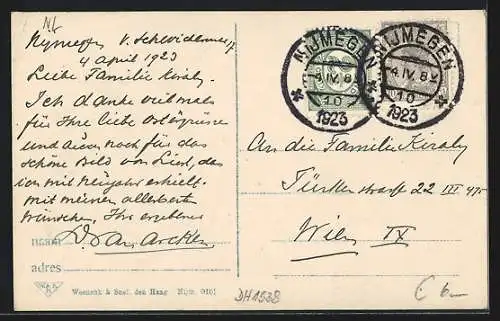 NL
Nymegen v. Schevichaven
4 April 1923
Liebe Familie Kiraly.
Ich danke viel mals
für Ihre liebe Ostergrüsse
und auch noch für das
schöne Bild von Liesl, das
ich mit Neujahr erhielt.
mit meinen allerbesten
Wünschen, Ihr ergebener
D. van Arckel
naam
adres
Weenenk & Snel, den Haag Nijm. 0101
NIJMEGEN
4.IV. 8
10
1923
NIJMEGEN
4.IV. 8
10
1923
An die Familie Kiraly
Türkenstrasse 22 III
Wien IX
DH1538